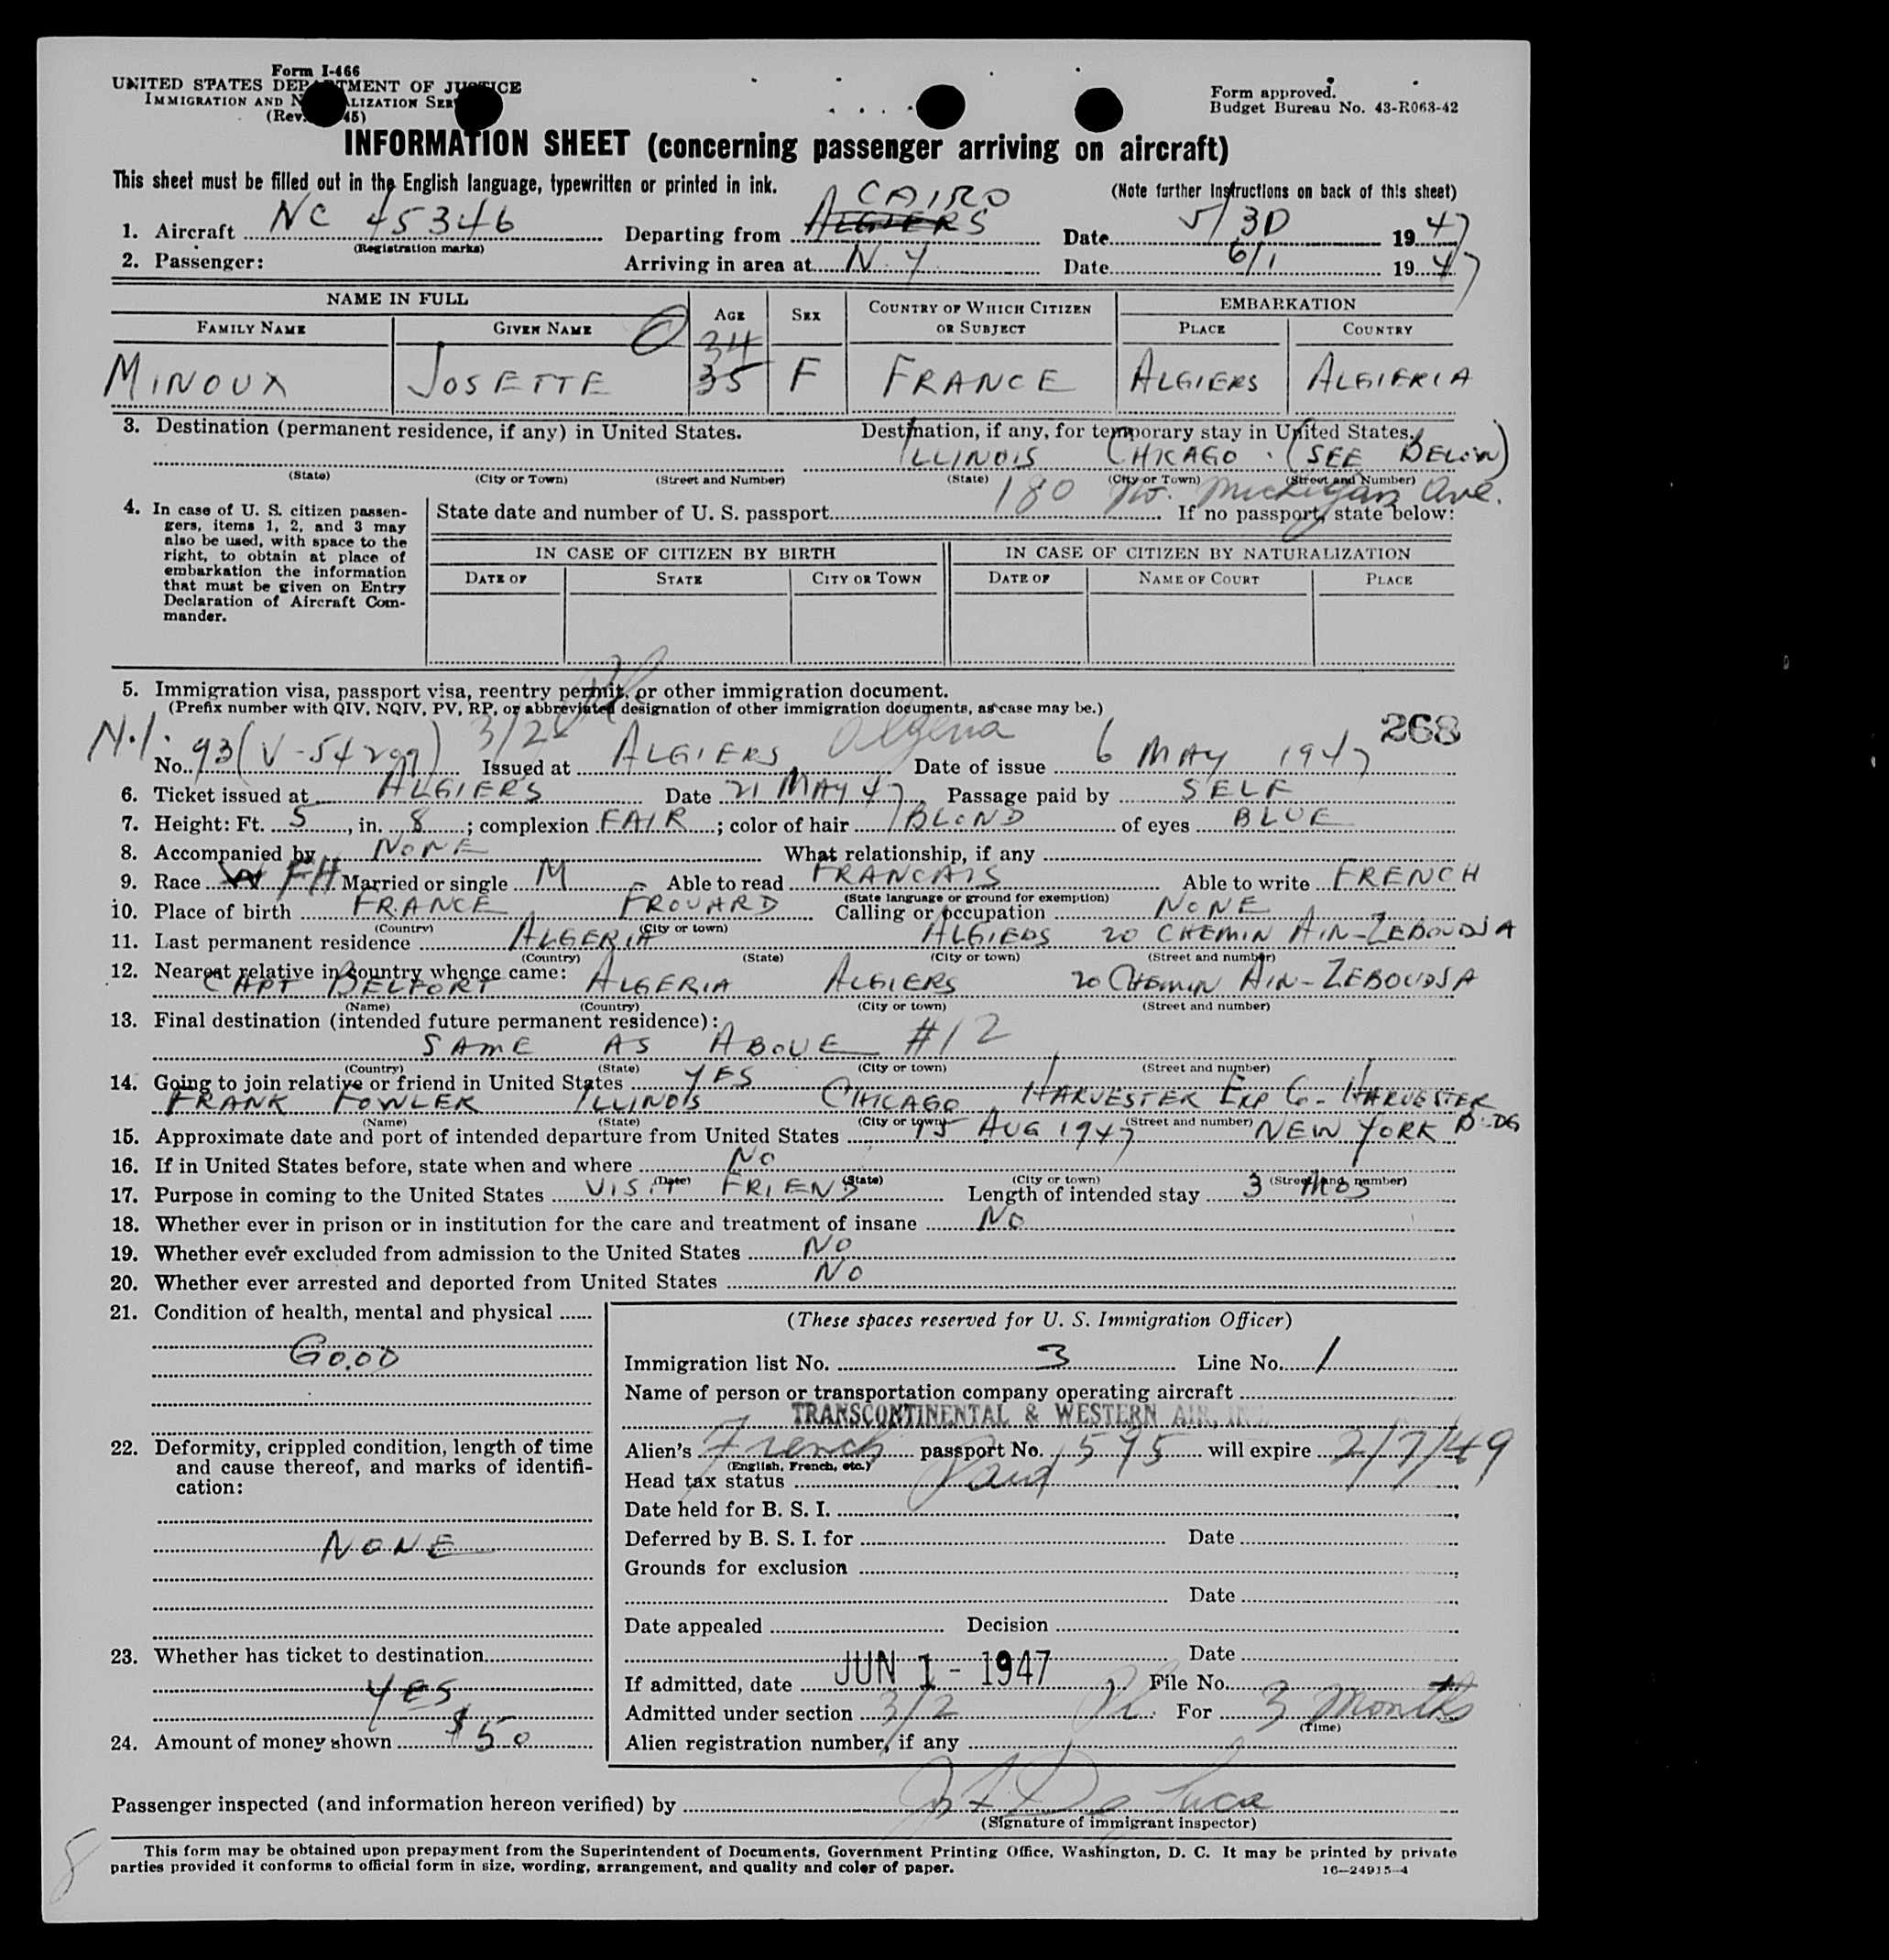 Form I-466
UNITED STATES DEPARTMENT OF JUSTICE
IMMIGRATION AND NATURALIZATION SERVICE
(Rev. 45)
Form approved.
Budget Bureau No. 43-R063-42
INFORMATION SHEET (concerning passenger arriving on aircraft)
This sheet must be filled out in the English language, typewritten or printed in ink.
(Note further instructions on back of this sheet)
CAIRO
1. Aircraft NC 45346 Departing from ALGIERS Date 5/30 1947
(Registration marks)
2. Passenger: Arriving in area at N.Y. Date 6/1 1947
NAME IN FULL AGE SEX COUNTRY OF WHICH CITIZEN OR SUBJECT EMBARKATION
FAMILY NAME GIVEN NAME PLACE COUNTRY
34
MINOUX JOSETTE 35 F FRANCE ALGIERS ALGIERIA
3. Destination (permanent residence, if any) in United States. Destination, if any, for temporary stay in United States.
ILLINOIS CHICAGO. (SEE BELOW)
(State) (City or Town) (Street and Number) (State) (City or Town) (Street and Number)
180 No. Michigan Ave.
4. In case of U. S. citizen passengers, items 1, 2, and 3 may also be used, with space to the right, to obtain at place of embarkation the information that must be given on Entry Declaration of Aircraft Commander.
State date and number of U. S. passport If no passport, state below:
IN CASE OF CITIZEN BY BIRTH IN CASE OF CITIZEN BY NATURALIZATION
DATE OF STATE CITY OR TOWN DATE OF NAME OF COURT PLACE
5. Immigration visa, passport visa, reentry permit, or other immigration document.
(Prefix number with QIV, NQIV, PV, RP, or abbreviated designation of other immigration documents, as case may be.)
268
N.I. 3/2 Algeria
No. 93 (V-54299) Issued at ALGIERS Date of issue 6 MAY 1947
6. Ticket issued at ALGIERS Date 21 MAY 47 Passage paid by SELF
7. Height: Ft. 5, in. 8; complexion FAIR; color of hair BLOND of eyes BLUE
8. Accompanied by NONE What relationship, if any
9. Race W FH Married or single M Able to read FRANCAIS Able to write FRENCH
(State language or ground for exemption)
10. Place of birth FRANCE FROUARD Calling or occupation NONE
(Country) (City or town)
11. Last permanent residence ALGERIA ALGIERS 20 CHEMIN AIN-ZEBOUDJA
(Country) (State) (City or town) (Street and number)
12. Nearest relative in country whence came:
CAPT BELFORT ALGERIA ALGIERS 20 CHEMIN AIN-ZEBOUDJA
(Name) (Country) (City or town) (Street and number)
13. Final destination (intended future permanent residence):
SAME AS ABOVE #12
(Country) (State) (City or town) (Street and number)
14. Going to join relative or friend in United States YES
FRANK FOWLER ILLINOIS CHICAGO HARVESTER EXP Co - HARVESTER BLDG
(Name) (State) (City or town) (Street and number)
15. Approximate date and port of intended departure from United States 15 AUG 1947 NEW YORK
16. If in United States before, state when and where NO
(Date) (State) (City or town) (Street and number)
17. Purpose in coming to the United States VISIT FRIENDS Length of intended stay 3 MOS
18. Whether ever in prison or in institution for the care and treatment of insane NO
19. Whether ever excluded from admission to the United States NO
20. Whether ever arrested and deported from United States NO
21. Condition of health, mental and physical
GOOD
22. Deformity, crippled condition, length of time and cause thereof, and marks of identification:
NONE
23. Whether has ticket to destination
YES
24. Amount of money shown $50
(These spaces reserved for U. S. Immigration Officer)
Immigration list No. 3 Line No. 1
Name of person or transportation company operating aircraft
TRANSCONTINENTAL & WESTERN AIR, INC.
Alien's French passport No. 595 will expire 2/7/49
(English, French, etc.)
Head tax status Paid
Date held for B. S. I.
Deferred by B. S. I. for Date
Grounds for exclusion
Date
Date appealed Decision
Date
If admitted, date JUN 1 - 1947 File No.
Admitted under section 3/2 For 3 Months
(Time)
Alien registration number, if any
Passenger inspected (and information hereon verified) by De Luca
(Signature of immigrant inspector)
This form may be obtained upon prepayment from the Superintendent of Documents, Government Printing Office, Washington, D. C. It may be printed by private
parties provided it conforms to official form in size, wording, arrangement, and quality and color of paper.
16—24915-4
8